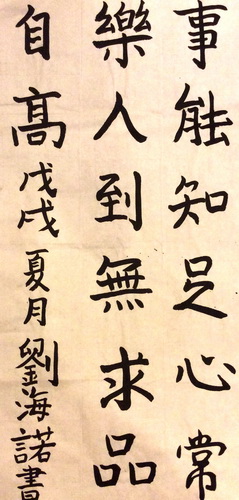 事能知足心常
樂人到無求品
自高戊戌夏月劉海諾書